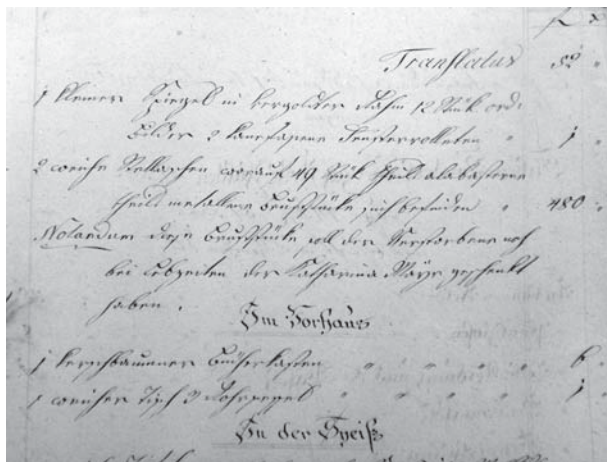 f x
Translatus 52 "
1 kleiner Spiegel in vergoldter Rahm 12 Stük ord:
Bilder 2 Fensterrolleten " 1 "
2 weiche Stellaschen worauf 49 Stük theils alabasterne
theils metallene Bruststüke sich befinden " 480 "
Notandum diese Bruststüke soll der Verstorbene noch
bei Lebzeiten der Katharina Mayr geschenkt
haben.
Im Vorhaus
1 kerschbaumener Bücherkasten " " " " " 6 "
1 weicher Tisch 3 " " " " 1 "
In der Speiß